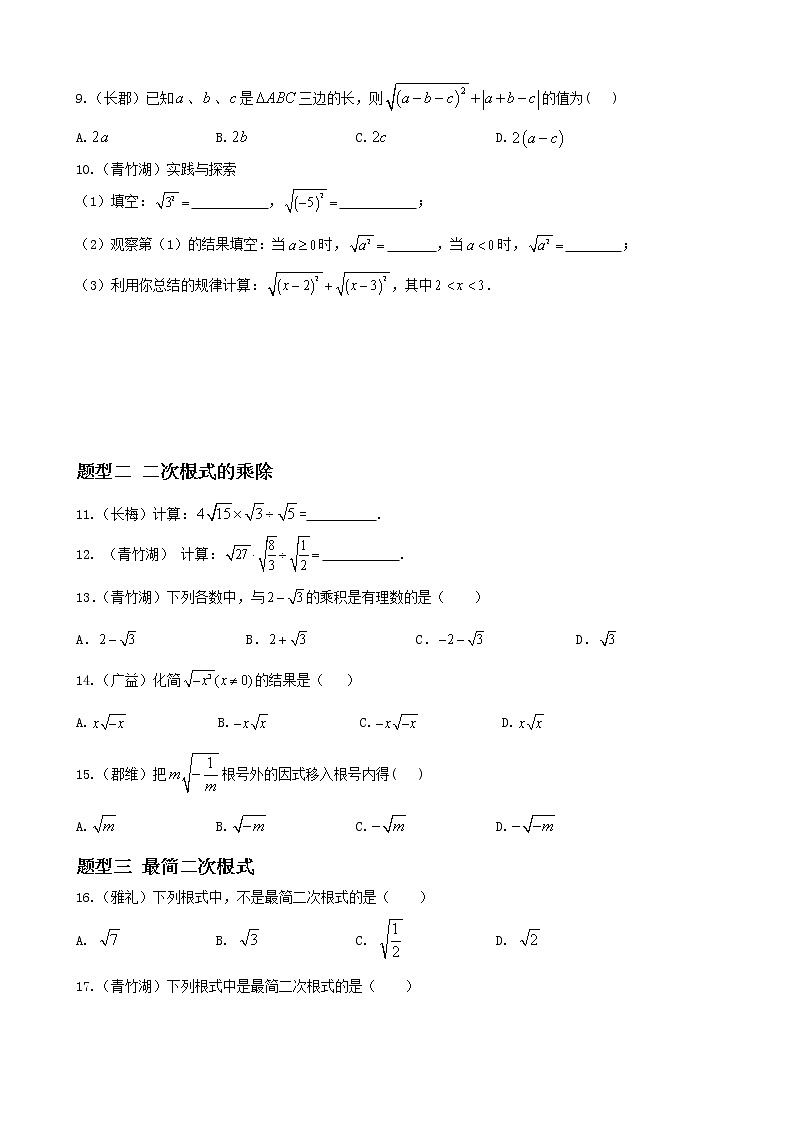 9.(长郡)已知a、b、c是ΔABC三边的长,则√(a−b−c)²+|a+b−c|的值为(  )
A.2a B.2b C.2c D.2(a−c)
10.(青竹湖)实践与探索
(1)填空:√3²=___________,√(−5)²=___________;
(2)观察第(1)的结果填空:当a≥0时,√a²=_______,当a<0时,√a²=________;
(3)利用你总结的规律计算:√(x−2)²+√(x−3)²,其中2<x<3.
题型二 二次根式的乘除
11.(长梅)计算:4√15×√3÷√5=__________.
12. (青竹湖) 计算:√27·√(8/3)÷√(1/2)=___________.
13.(青竹湖)下列各数中,与2−√3的乘积是有理数的是(  )
A.2−√3 B.2+√3 C.−2−√3 D.√3
14.(广益)化简√−x³(x≠0)的结果是(  )
A.x√−x B.−x√x C.−x√−x D.x√x
15.(郡维)把m√(−1/m)根号外的因式移入根号内得(  )
A.√m B.√−m C.−√m D.−√−m
题型三 最简二次根式
16.(雅礼)下列根式中,不是最简二次根式的是(  )
A. √7 B. √3 C. √(1/2) D. √2
17.(青竹湖)下列根式中是最简二次根式的是(  )